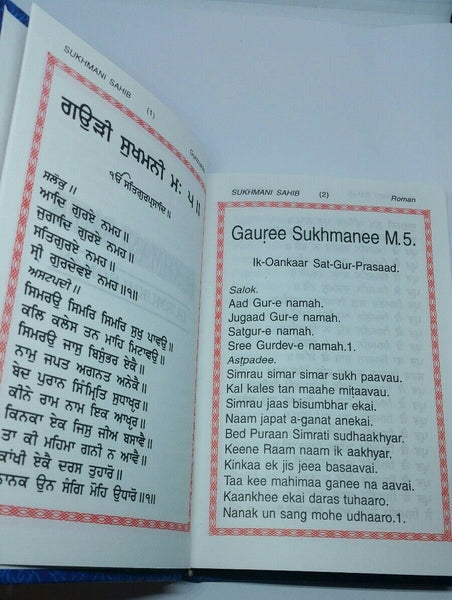 SUKHMANI SAHIB (1)
ਗਉੜੀ ਸੁਖਮਨੀ ਮਃ ੫॥
ੴ ਸਤਿਗੁਰਪ੍ਰਸਾਦਿ॥
ਸਲੋਕੁ॥
ਆਦਿ ਗੁਰਏ ਨਮਹ॥
ਜੁਗਾਦਿ ਗੁਰਏ ਨਮਹ॥
ਸਤਿਗੁਰਏ ਨਮਹ॥
ਸ੍ਰੀ ਗੁਰਦੇਵਏ ਨਮਹ॥੧॥
ਅਸਟਪਦੀ॥
ਸਿਮਰਉ ਸਿਮਰਿ ਸਿਮਰਿ ਸੁਖੁ ਪਾਵਉ॥
ਕਲਿ ਕਲੇਸ ਤਨ ਮਾਹਿ ਮਿਟਾਵਉ॥
ਸਿਮਰਉ ਜਾਸੁ ਬਿਸੁੰਭਰ ਏਕੈ॥
ਨਾਮੁ ਜਪਤ ਅਗਨਤ ਅਨੇਕੈ॥
ਬੇਦ ਪੁਰਾਨ ਸਿੰਮ੍ਰਿਤਿ ਸੁਧਾਖੁਰ॥
ਕੀਨੇ ਰਾਮ ਨਾਮ ਇਕ ਆਖੁਰ॥
ਕਿਨਕਾ ਏਕ ਜਿਸੁ ਜੀਅ ਬਸਾਵੈ॥
ਤਾ ਕੀ ਮਹਿਮਾ ਗਨੀ ਨ ਆਵੈ॥
ਕਾਂਖੀ ਏਕੈ ਦਰਸ ਤੁਹਾਰੋ॥
ਨਾਨਕ ਉਨ ਸੰਗਿ ਮੋਹਿ ਉਧਾਰੋ॥੧॥
SUKHMANI SAHIB (2) Roman
Gauṛee Sukhmanee M.5.
Ik-Oankaar Sat-Gur-Prasaad.
Salok.
Aad Gur-e namah.
Jugaad Gur-e namah.
Satgur-e namah.
Sree Gurdev-e namah.1.
Asṭpadee.
Simrau simar simar sukh paavau.
Kal kales tan maahe miṭaavau.
Simrau jaas bisumbhar ekai.
Naam japat a-ganat anekai.
Bed Puraan Simrati sudhaakhyar.
Keene Raam naam ik aakhyar.
Kinkaa ek jis jeea basaavai.
Taa kee mahimaa ganee na aavai.
Kaankhee ekai daras tuhaaro.
Nanak un sang mohe udhaaro.1.